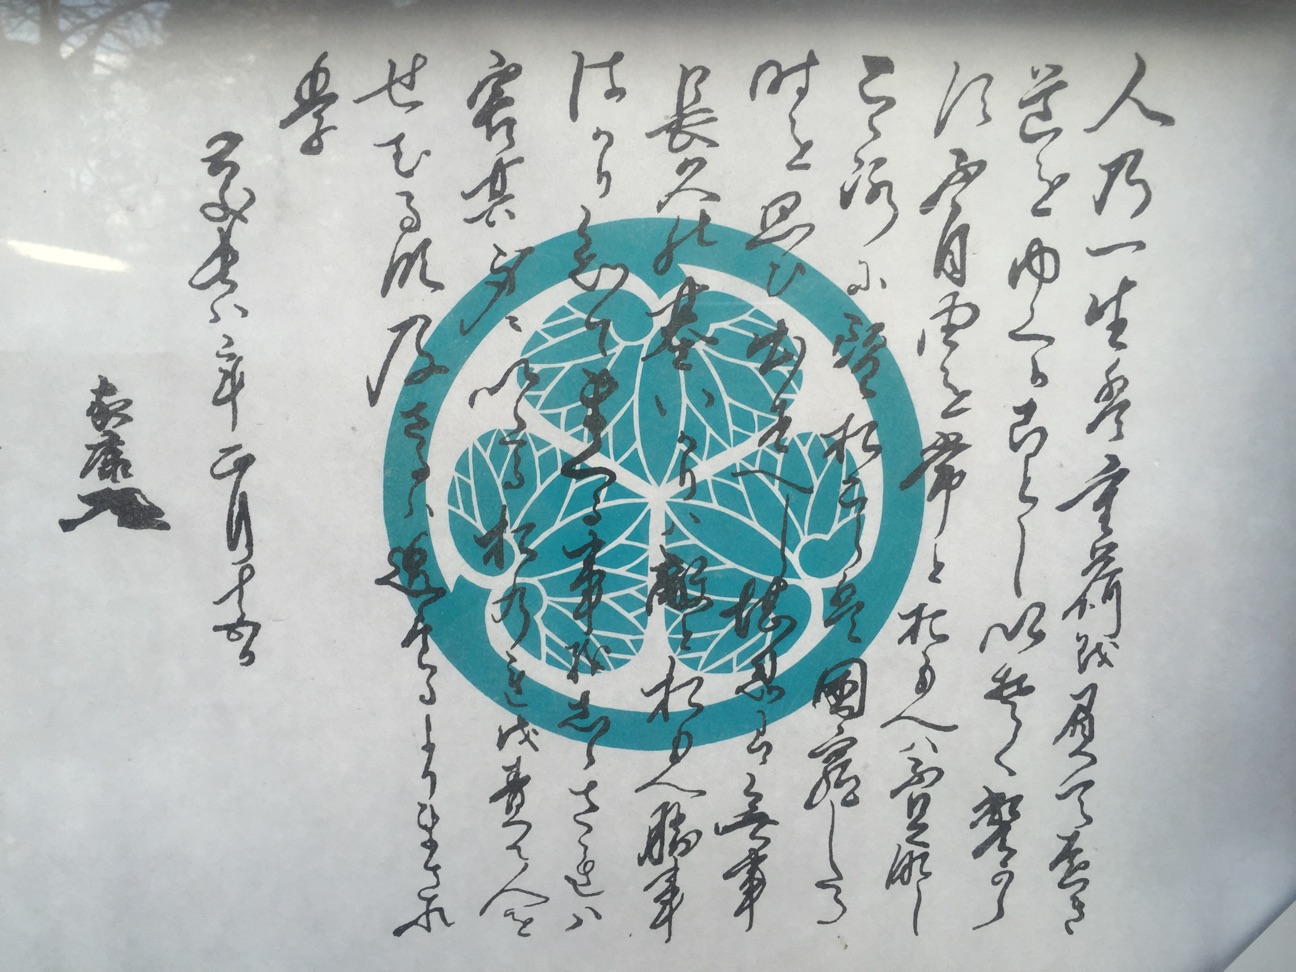 人乃一生盤重荷越負て遠き
道をゆくか如し以楚く邊可ら
須不自由を常とおもへハ不足那し
こゝ路に望おこら盤困窮したる
時を思ひ出春へし堪忍は無事
長久の基いかりハ敵とおもへ勝事
はかり知てまくる事越志らされハ
害其身尓以たるおの連越責て人を
せむる那及さるハ過たるよりまされ
里
慶長八年正月十五日
家康